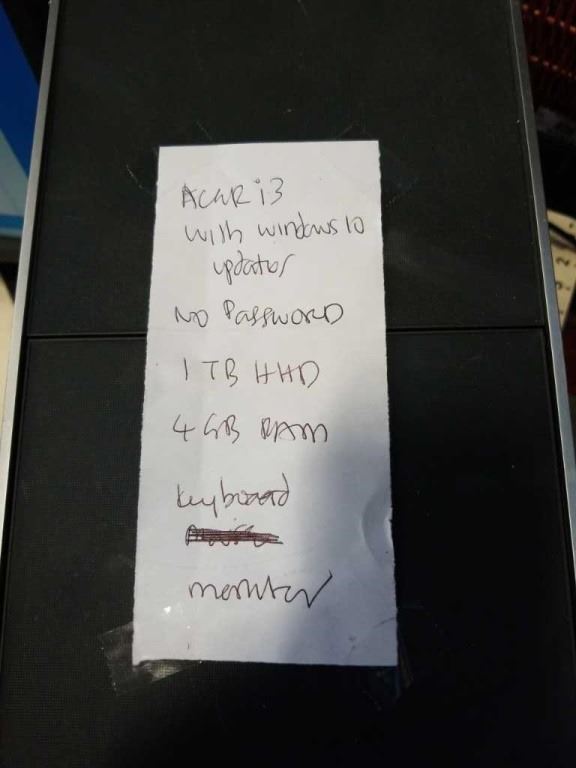 ACER i3
with windows 10
updates
NO Password
1 TB HHD
4 GB RAM
keyboard
monitor